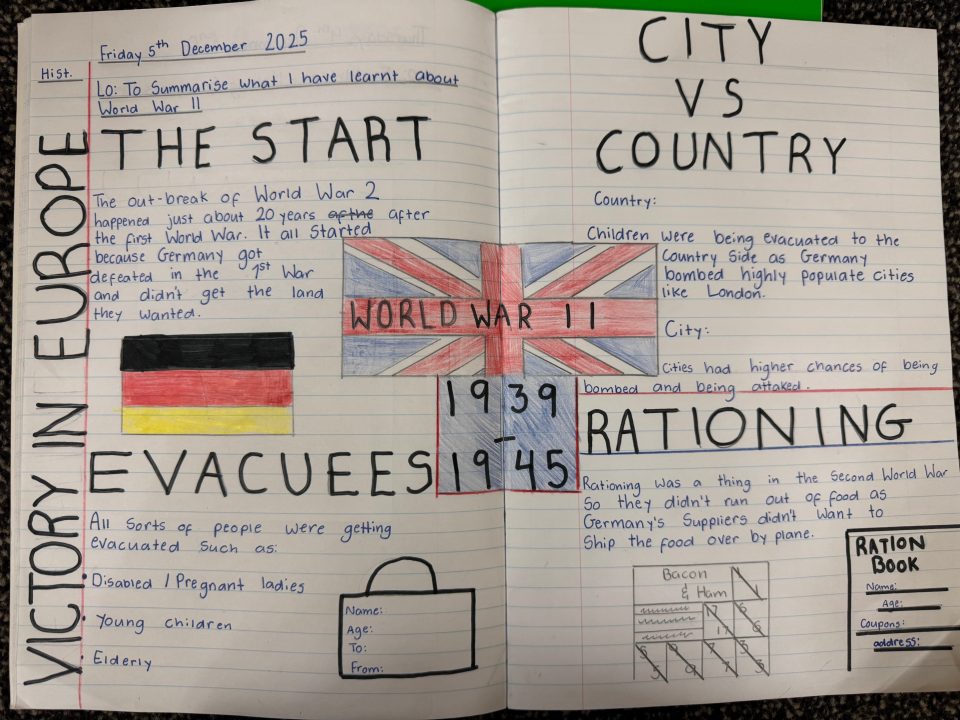 Friday 5th December 2025
Hist.
LO: To Summarise what I have learnt about
World War II
VICTORY IN EUROPE
THE START
The out-break of World War 2
happened just about 20 years after
the first World War. It all started
because Germany got
defeated in the 1st War
and didn't get the land
they wanted.
WORLD WAR II
1939
-
1945
EVACUEES
All sorts of people were getting
evacuated such as:
Disabled / Pregnant ladies
Young children
Elderly
Name:
Age:
To:
From:
CITY
VS
COUNTRY
Country:
Children were being evacuated to the
Country side as Germany
bombed highly populate cities
like London.
City:
Cities had higher chances of being
bombed and being attaked.
RATIONING
Rationing was a thing in the Second World War
So they didn't run out of food as
Germany's Suppliers didn't want to
Ship the food over by plane.
Bacon
& Ham
RATION
BOOK
Name:
Age:
Coupons:
address: